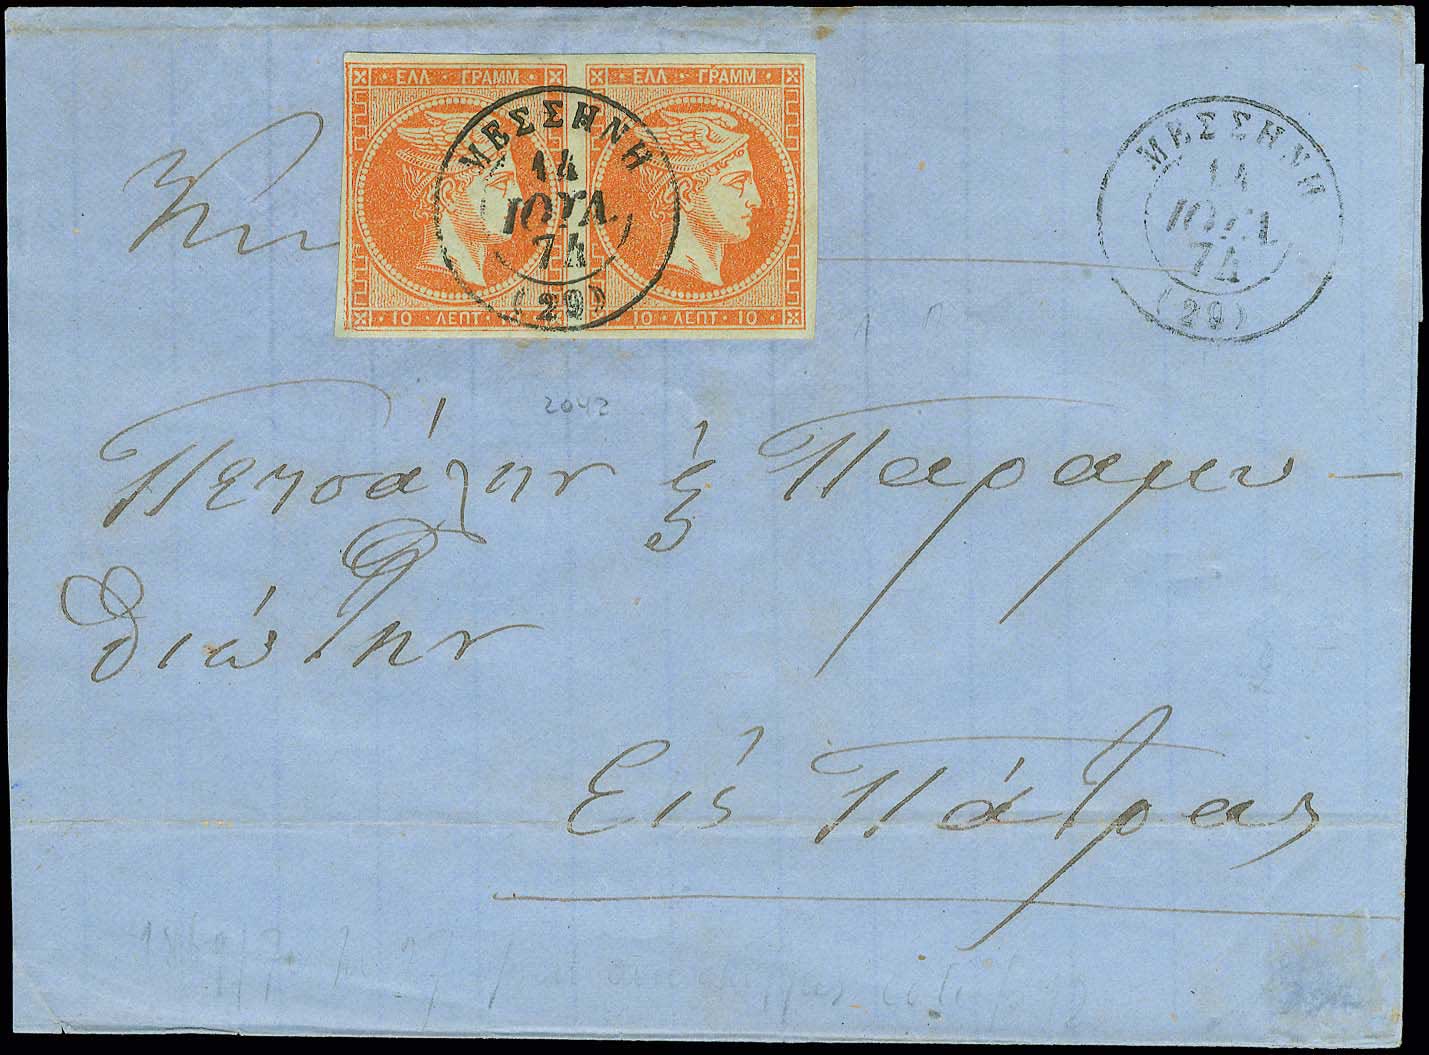 ΕΛΛ · ΓΡΑΜΜ · ΕΛΛ · ΓΡΑΜΜ
ΜΕΣΣΗΝΗ
14
ΙΟΥΛ
74
(29)
10 · ΛΕΠΤ · 10 · ΛΕΠΤ · 10
ΜΕΣΣΗΝΗ
14
ΙΟΥΛ
74
(29)
2042
Πετσάλην & Παραμυ-
θιώτην
Εις Πάτρας